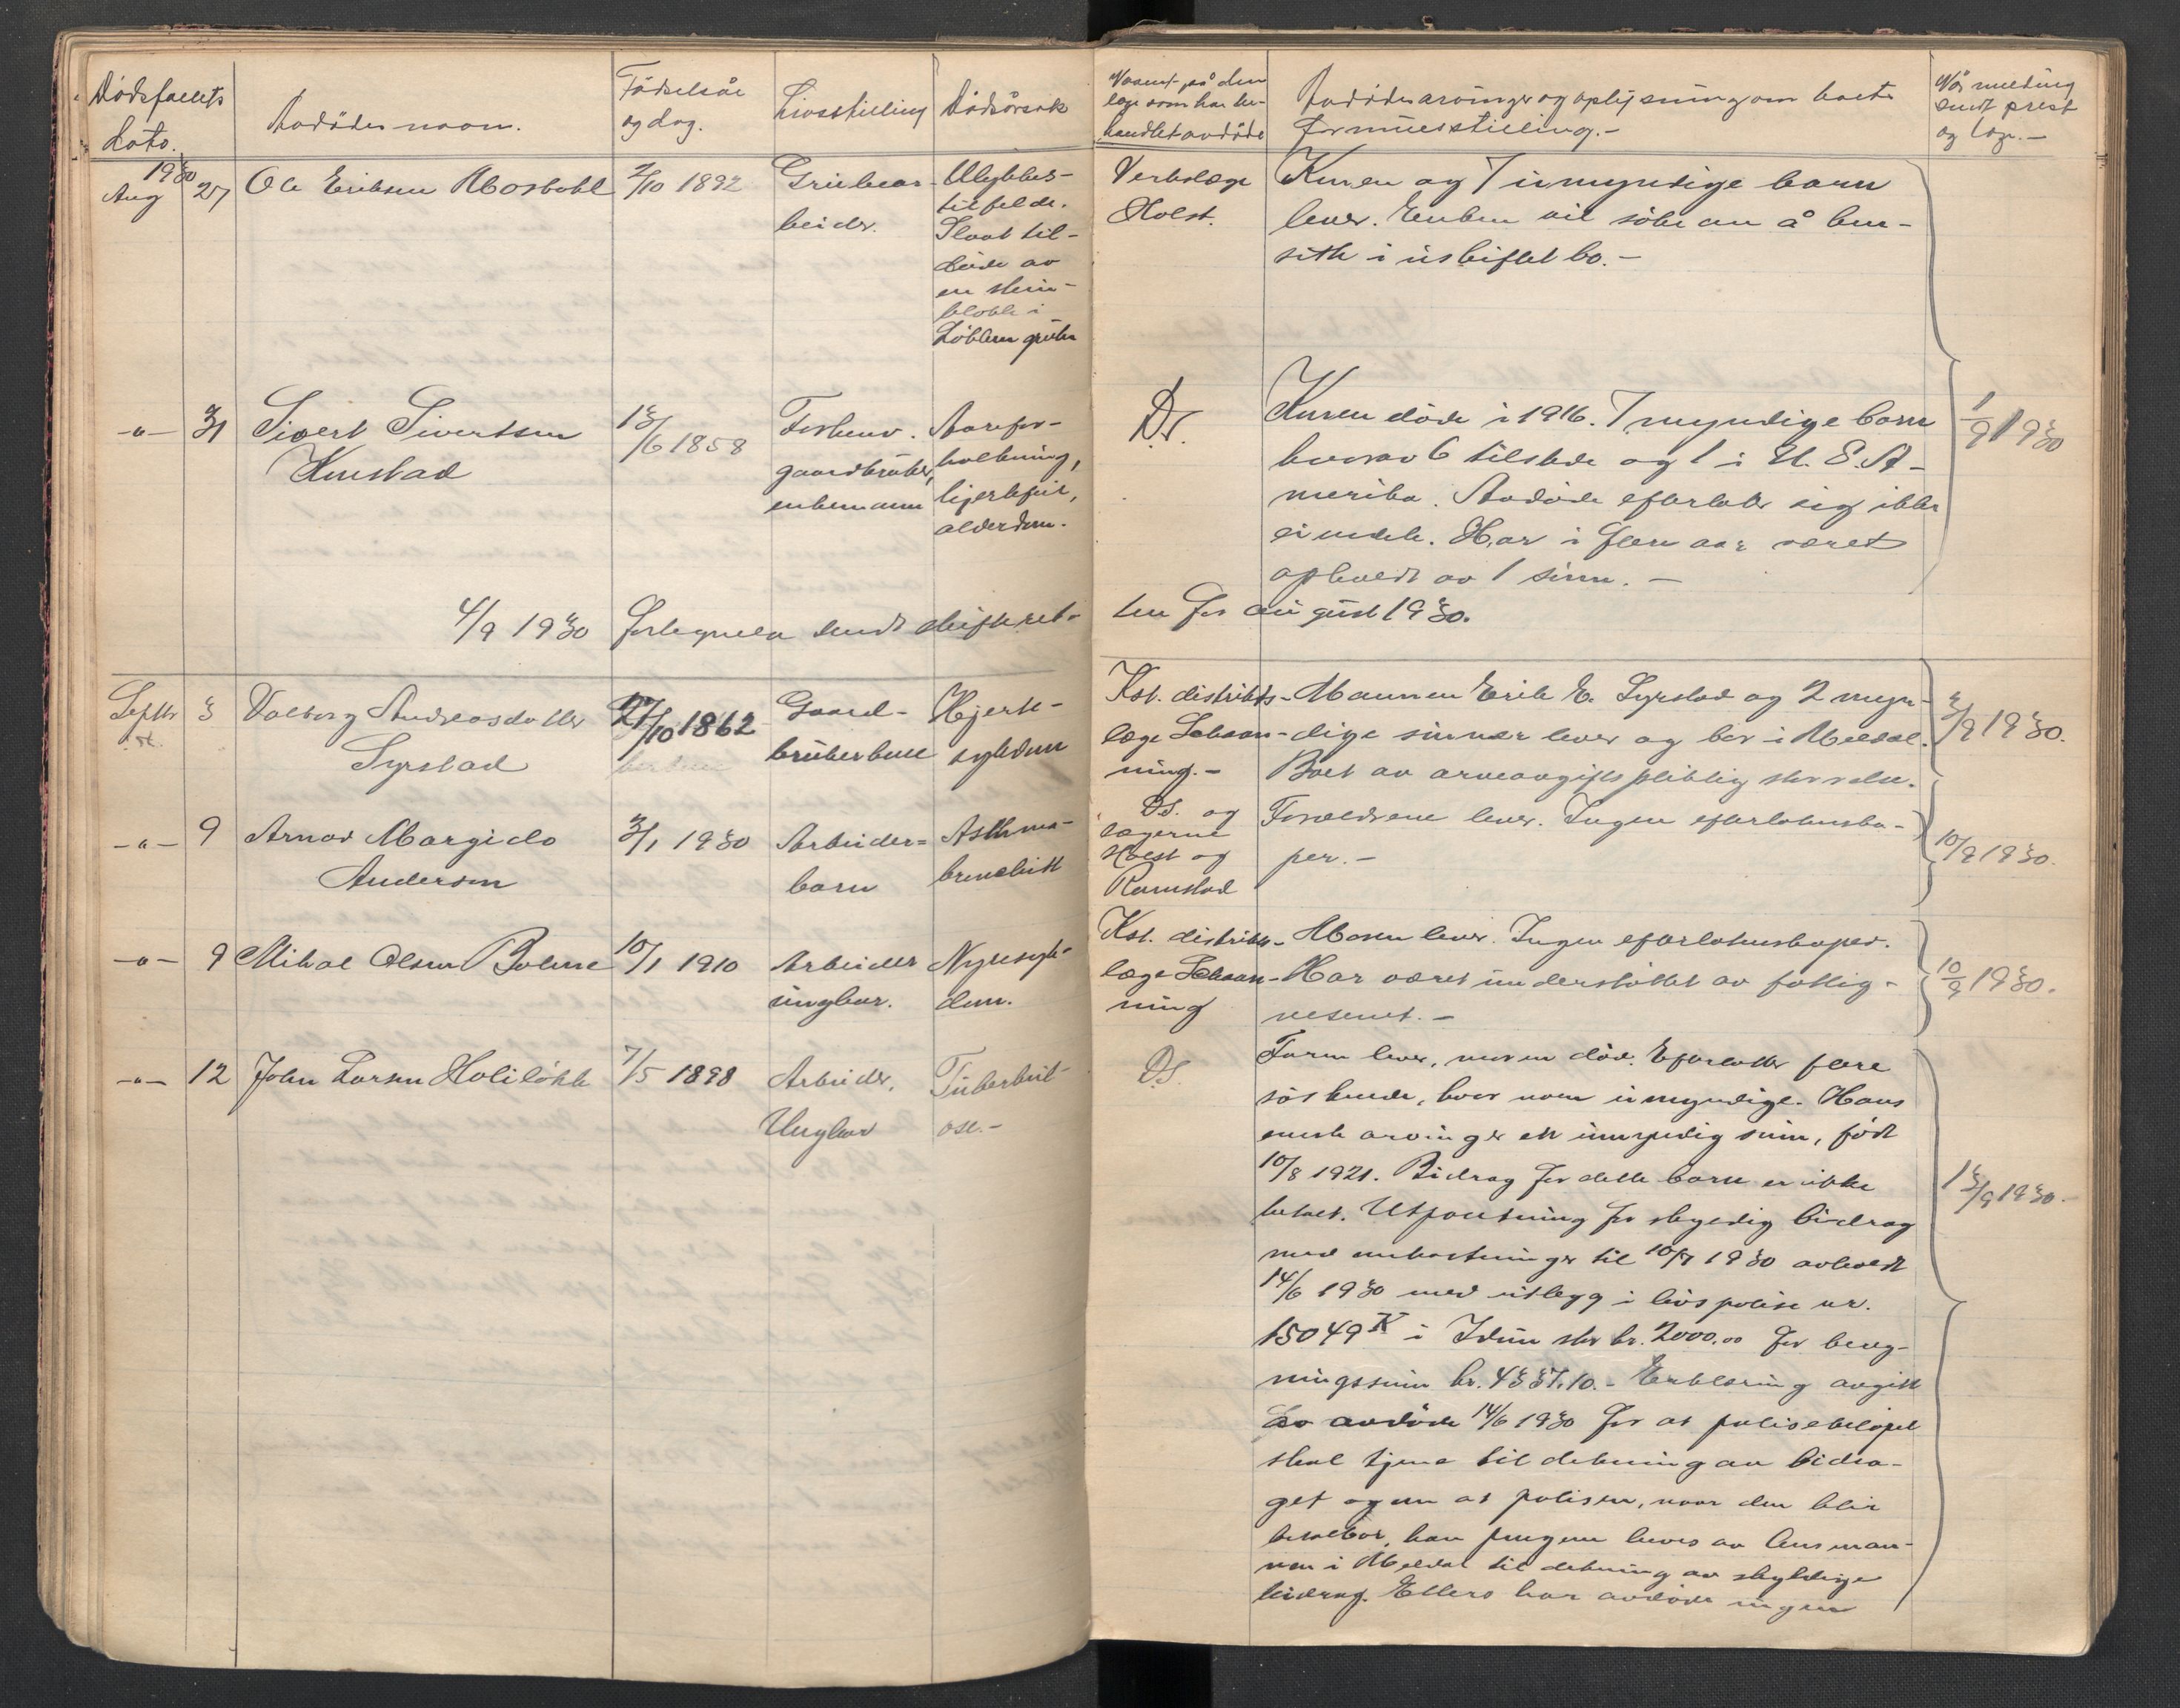 Dødsfallets
dato.
Avdødes navn.
Fødselsår
og dag.
Livsstilling
Dødsårsak
Navnet på den
læge som har be-
handlet avdøde
Avdødes arvinger og oplysning om boets
formuesstilling.-
Når melding
sendt prest
og læge.-
1930
Aug 27
Ole Eriksen Mosbakk
2/10 1892
Grubear-
beider.
Ulykkes-
tilfelde.
Slaat til-
døde av
en sten-
blokk i
Løkken grube
Verkslæge
Holst.
Konen og 7 umyndige barn
lever. Enken vil søke om å hen-
sitte i uskiftet bo.-
-"- 31
Sivert Sivertsen
Kinstad
13/6 1858
Forhenv.
gaardbruker,
enkemann
Aarefor-
kalkning,
hjertefeil,
alderdom.
Ds.
Konen døde i 1916. 7 myndige barn
hvorav 6 tilstede og 1 i U.S.A-
merika. Avdøde efterlater sig ikke
eiendele. Har i flere aar været
opholdt av 1 sønn.-
1/9 1930
4/9 1930 fortegnelse sendt skifteret-
ten for august 1930.
Septbr 3
Valborg Andreasdatter
Syrstad
27/10 1862
Gaard-
brukerkone
Hjerte-
sykdom
Kst. distrikts-
læge Schaan-
ning.-
Mannen Erik E. Syrstad og 2 myn-
dige sønner lever og bor i Meldal.
Boet av arveavgiftspliktig størrelse.
3/9 1930.
-"- 9
Arnov Margido
Andersen
3/1 1930
Arbeider-
barn
Asthma-
bronchitt
Ds. og
lægerne
Holst og
Ramstad
Foreldrene lever. Ingen efterlatenska-
per.-
10/9 1930.
-"- 9
Mikal Olsen Bolme
10/1 1910
Arbeider
ungkar.
Nyresyk-
dom.
Kst. distrikts-
læge Schaan-
ning
Moren lever. Ingen efterlatenskaper.
Har været understøttet av fattig-
vesenet.-
10/9 1930.
-"- 12
John Larsen Holiløkk
7/5 1898
Arbeider,
Ungkar
Tuberkul-
ose.-
Ds.
Faren lever, moren død. Efterlatter flere
søskende, hvor noen umyndige. Hans
eneste arvinger en umyndig sønn, født
10/8 1921. Bidrag for dette barn er ikke
betalt. Utpantning for skyldig bidrag
med omkostninger til 10/7 1930 avholdt
14/6 1930 med utlegg i livspolise nr.
15049 K i Idun stor kr. 2000.00 for bereg-
ningssum kr. 4337.10.- Erklæring avgitt
av avdøde 14/6 1930 for at polisebeløpet
skal tjene til dekning av bidra-
get og om at polisen, naar den blir
betalbar, kan pengene heves av lensman-
nen i Meldal til dekning av skyldige
bidrag. Ellers har avdøde ingen
13/9 1930.-